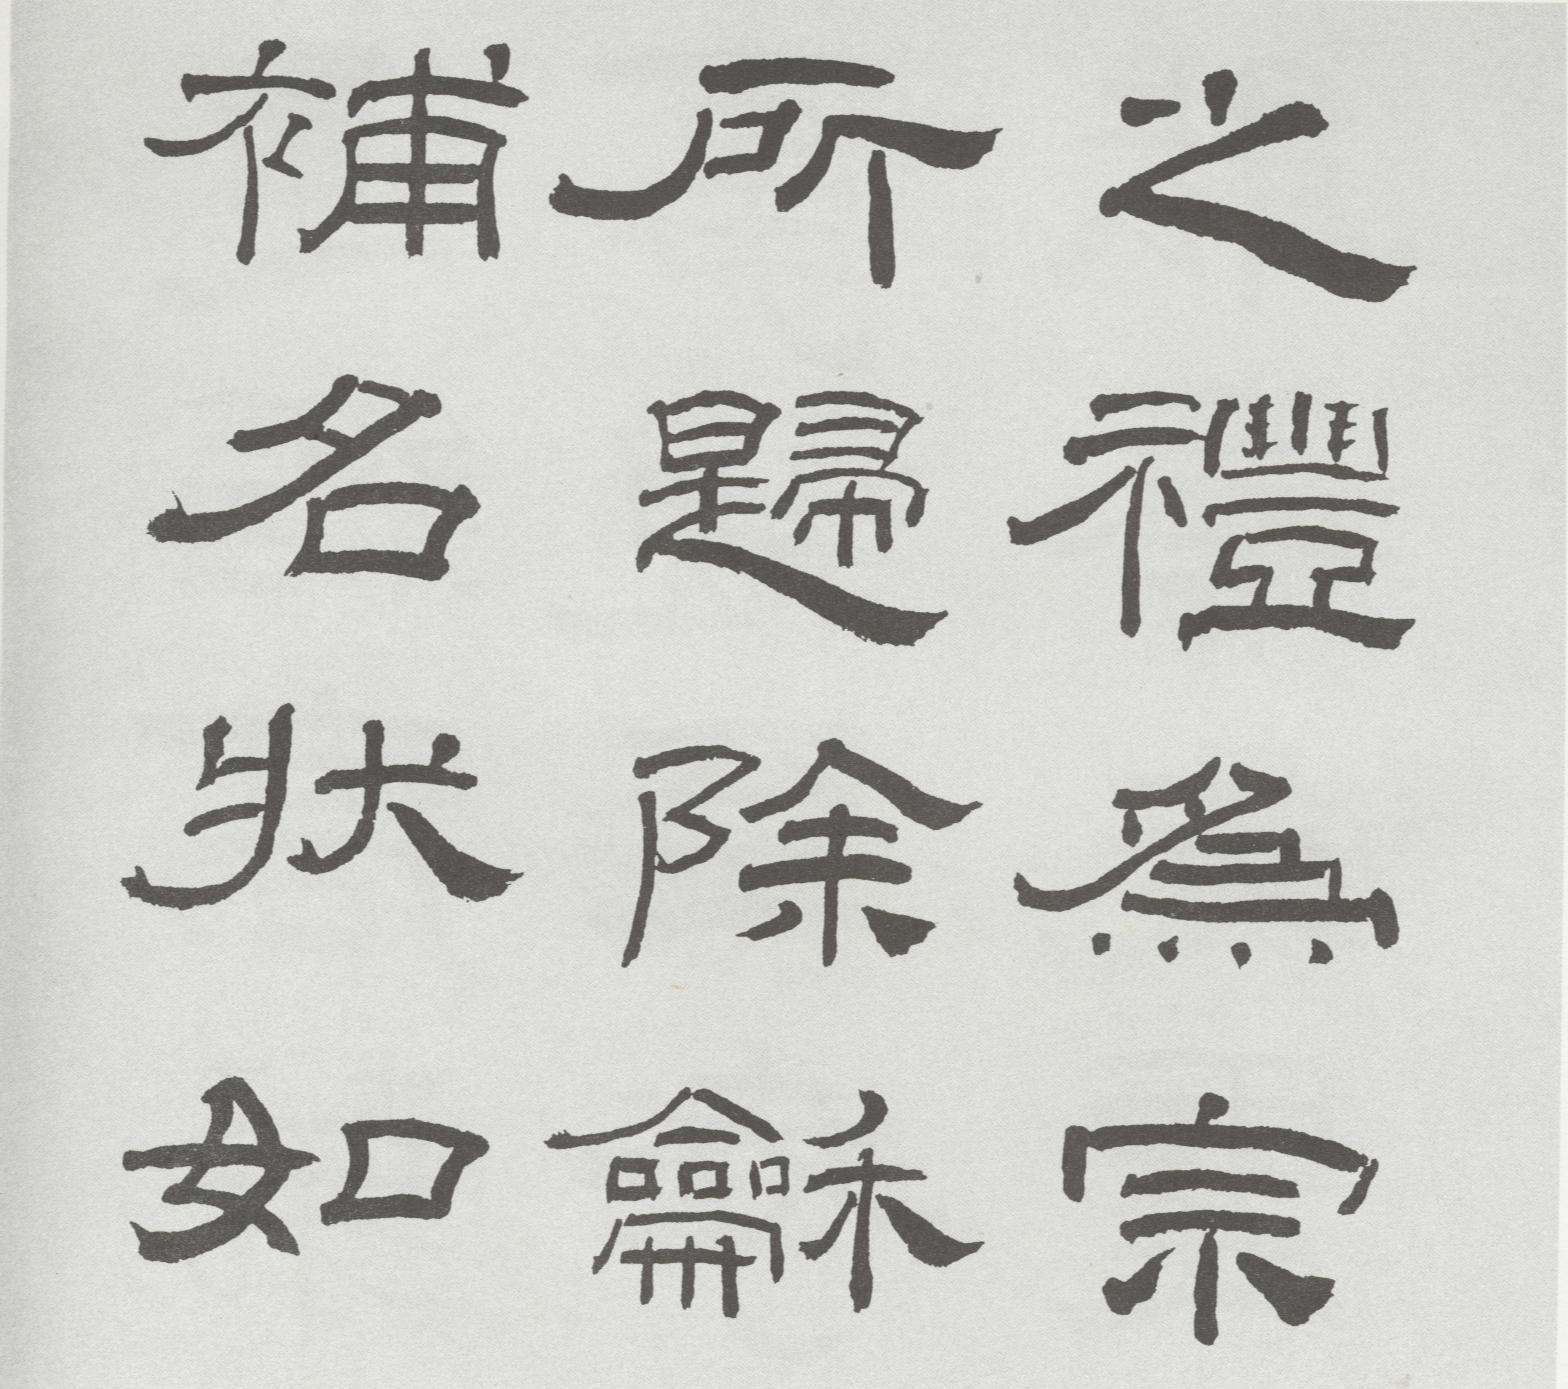 之禮為宗
所歸除龢
補名狀如